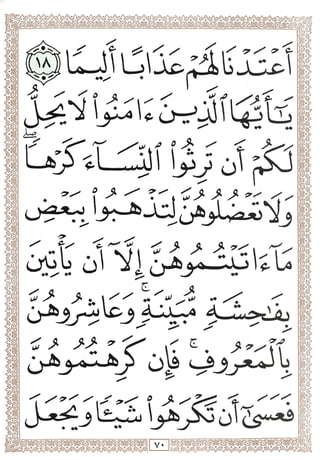 أَعْتَدْنَا لَهُمْ عَذَابًا أَلِيمًا ١٨
يَٰٓأَيُّهَا ٱلَّذِينَ ءَامَنُوا۟ لَا يَحِلُّ
لَكُمْ أَن تَرِثُوا۟ ٱلنِّسَآءَ كَرْهًا ۖ
وَلَا تَعْضُلُوهُنَّ لِتَذْهَبُوا۟ بِبَعْضِ
مَآ ءَاتَيْتُمُوهُنَّ إِلَّآ أَن يَأْتِينَ
بِفَٰحِشَةٍ مُّبَيِّنَةٍ ۚ وَعَاشِرُوهُنَّ
بِٱلْمَعْرُوفِ ۚ فَإِن كَرِهْتُمُوهُنَّ
فَعَسَىٰٓ أَن تَكْرَهُوا۟ شَيْـًٔا وَيَجْعَلَ
٧٠